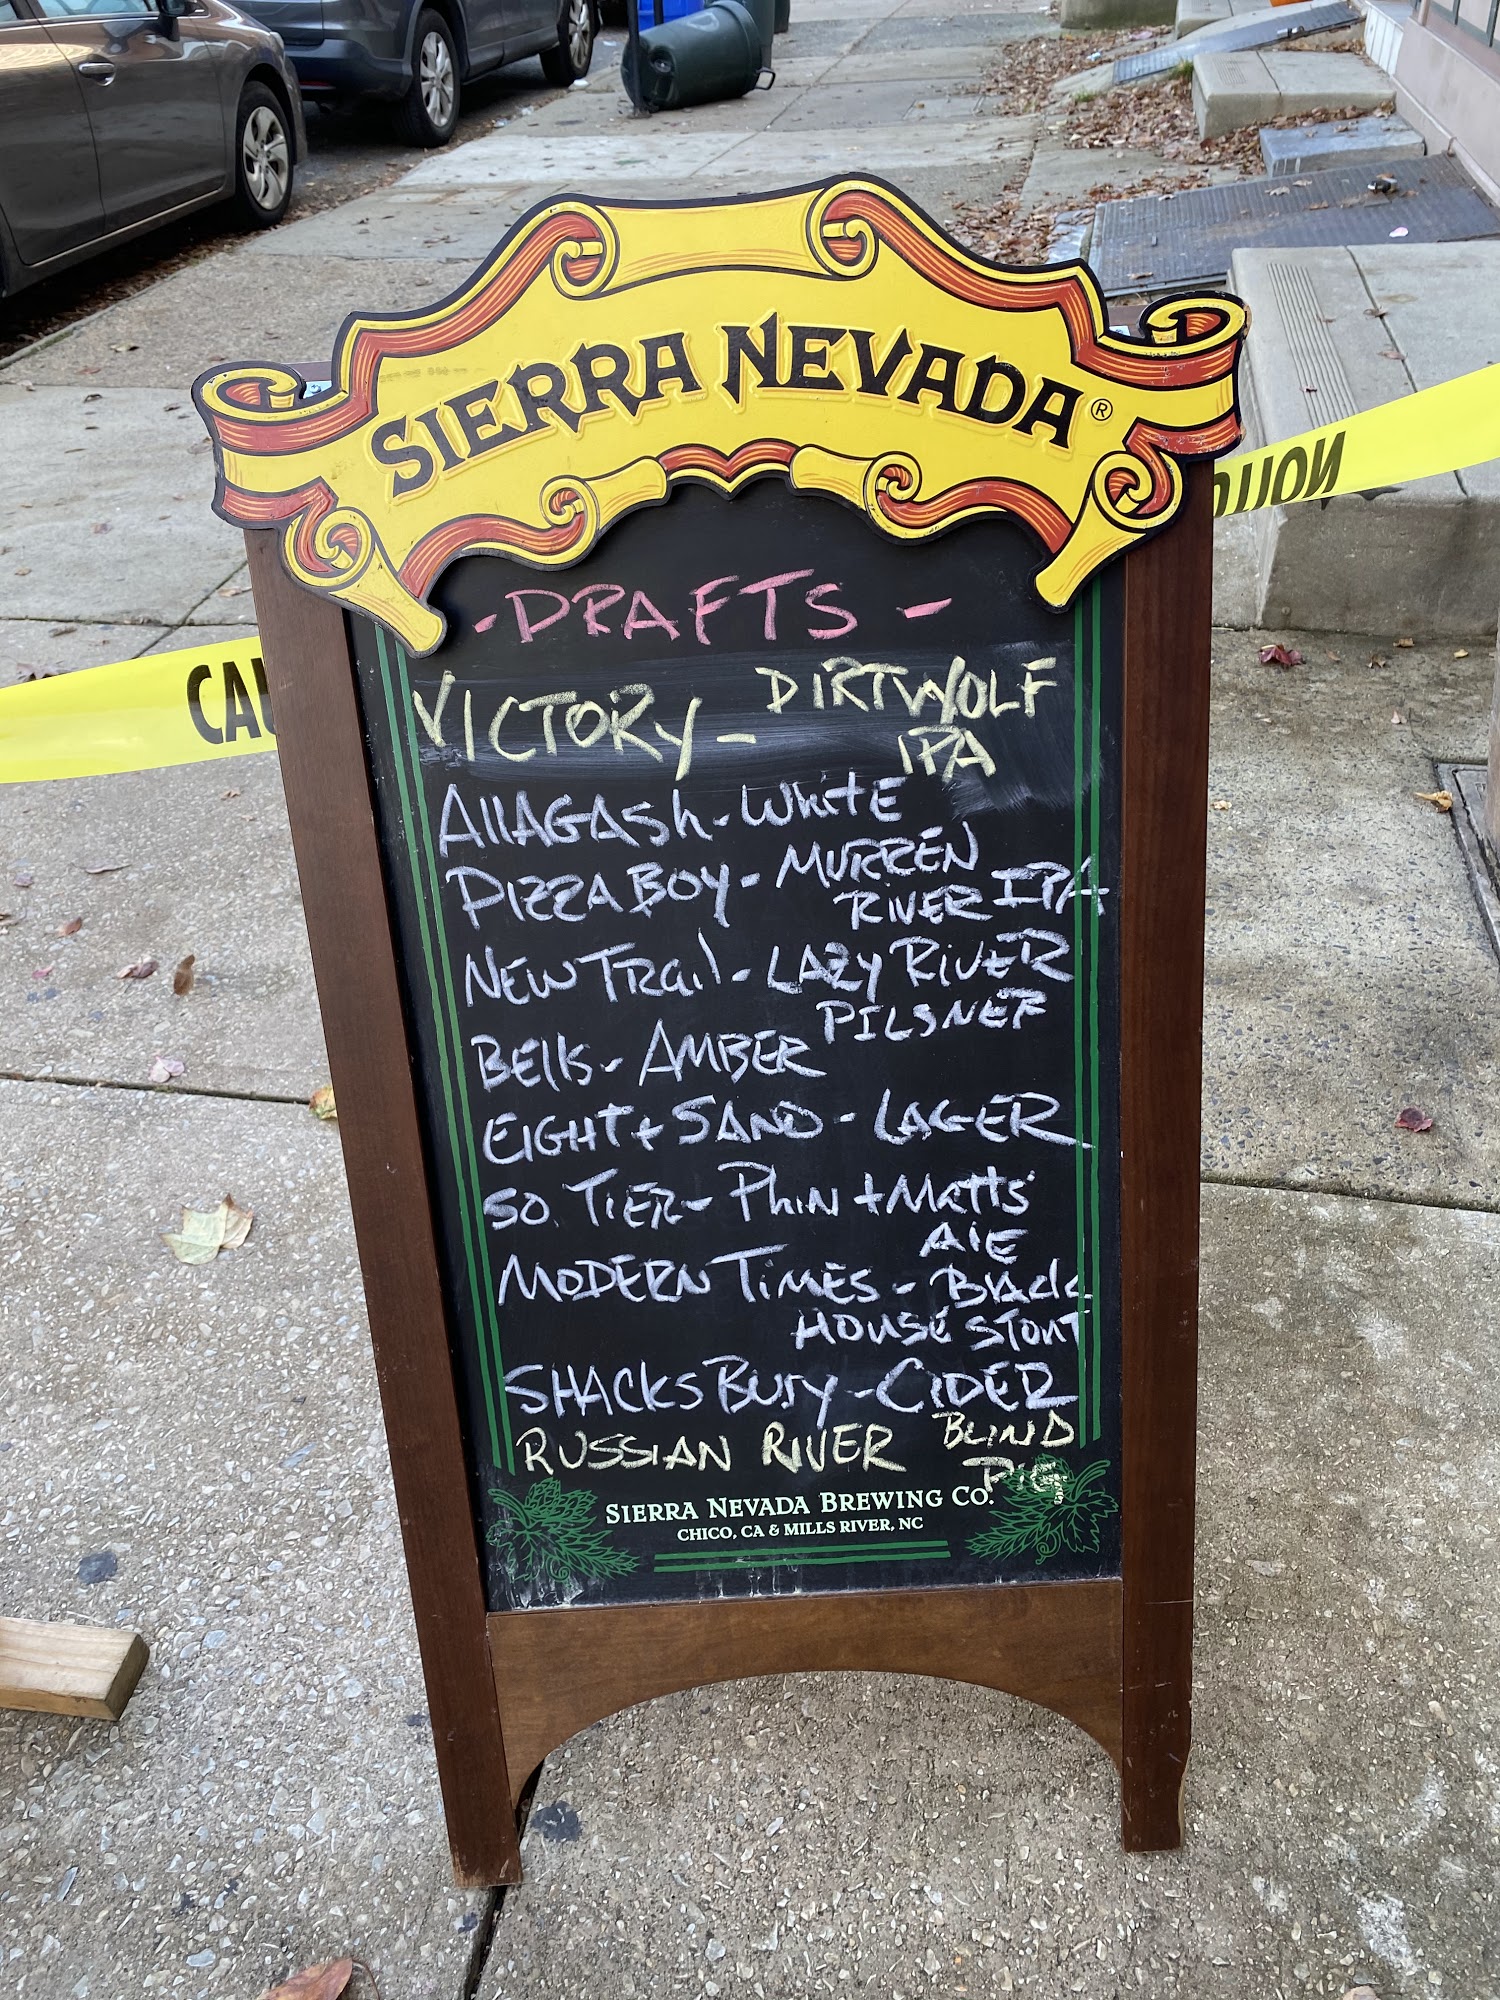 SIERRA NEVADA®
- DRAFTS -
VICTORY - DIRTWOLF
IPA
AllAGASh - WhitE
PIZZA BOY - MURREN
RIVER IPA
NEW TRail - LAZY RIVER
PILSNER
BEllS - AMBER
EIGHT + SAND - LAGER
SO. TIER - Phin + Matts'
AlE
MODERN TIMES - Black
HOUSE STOUT
SHACKSBURY - CIDER
RUSSIAN RIVER BLIND
PIG
SIERRA NEVADA BREWING CO.
CHICO, CA & MILLS RIVER, NC
CAU
UTION